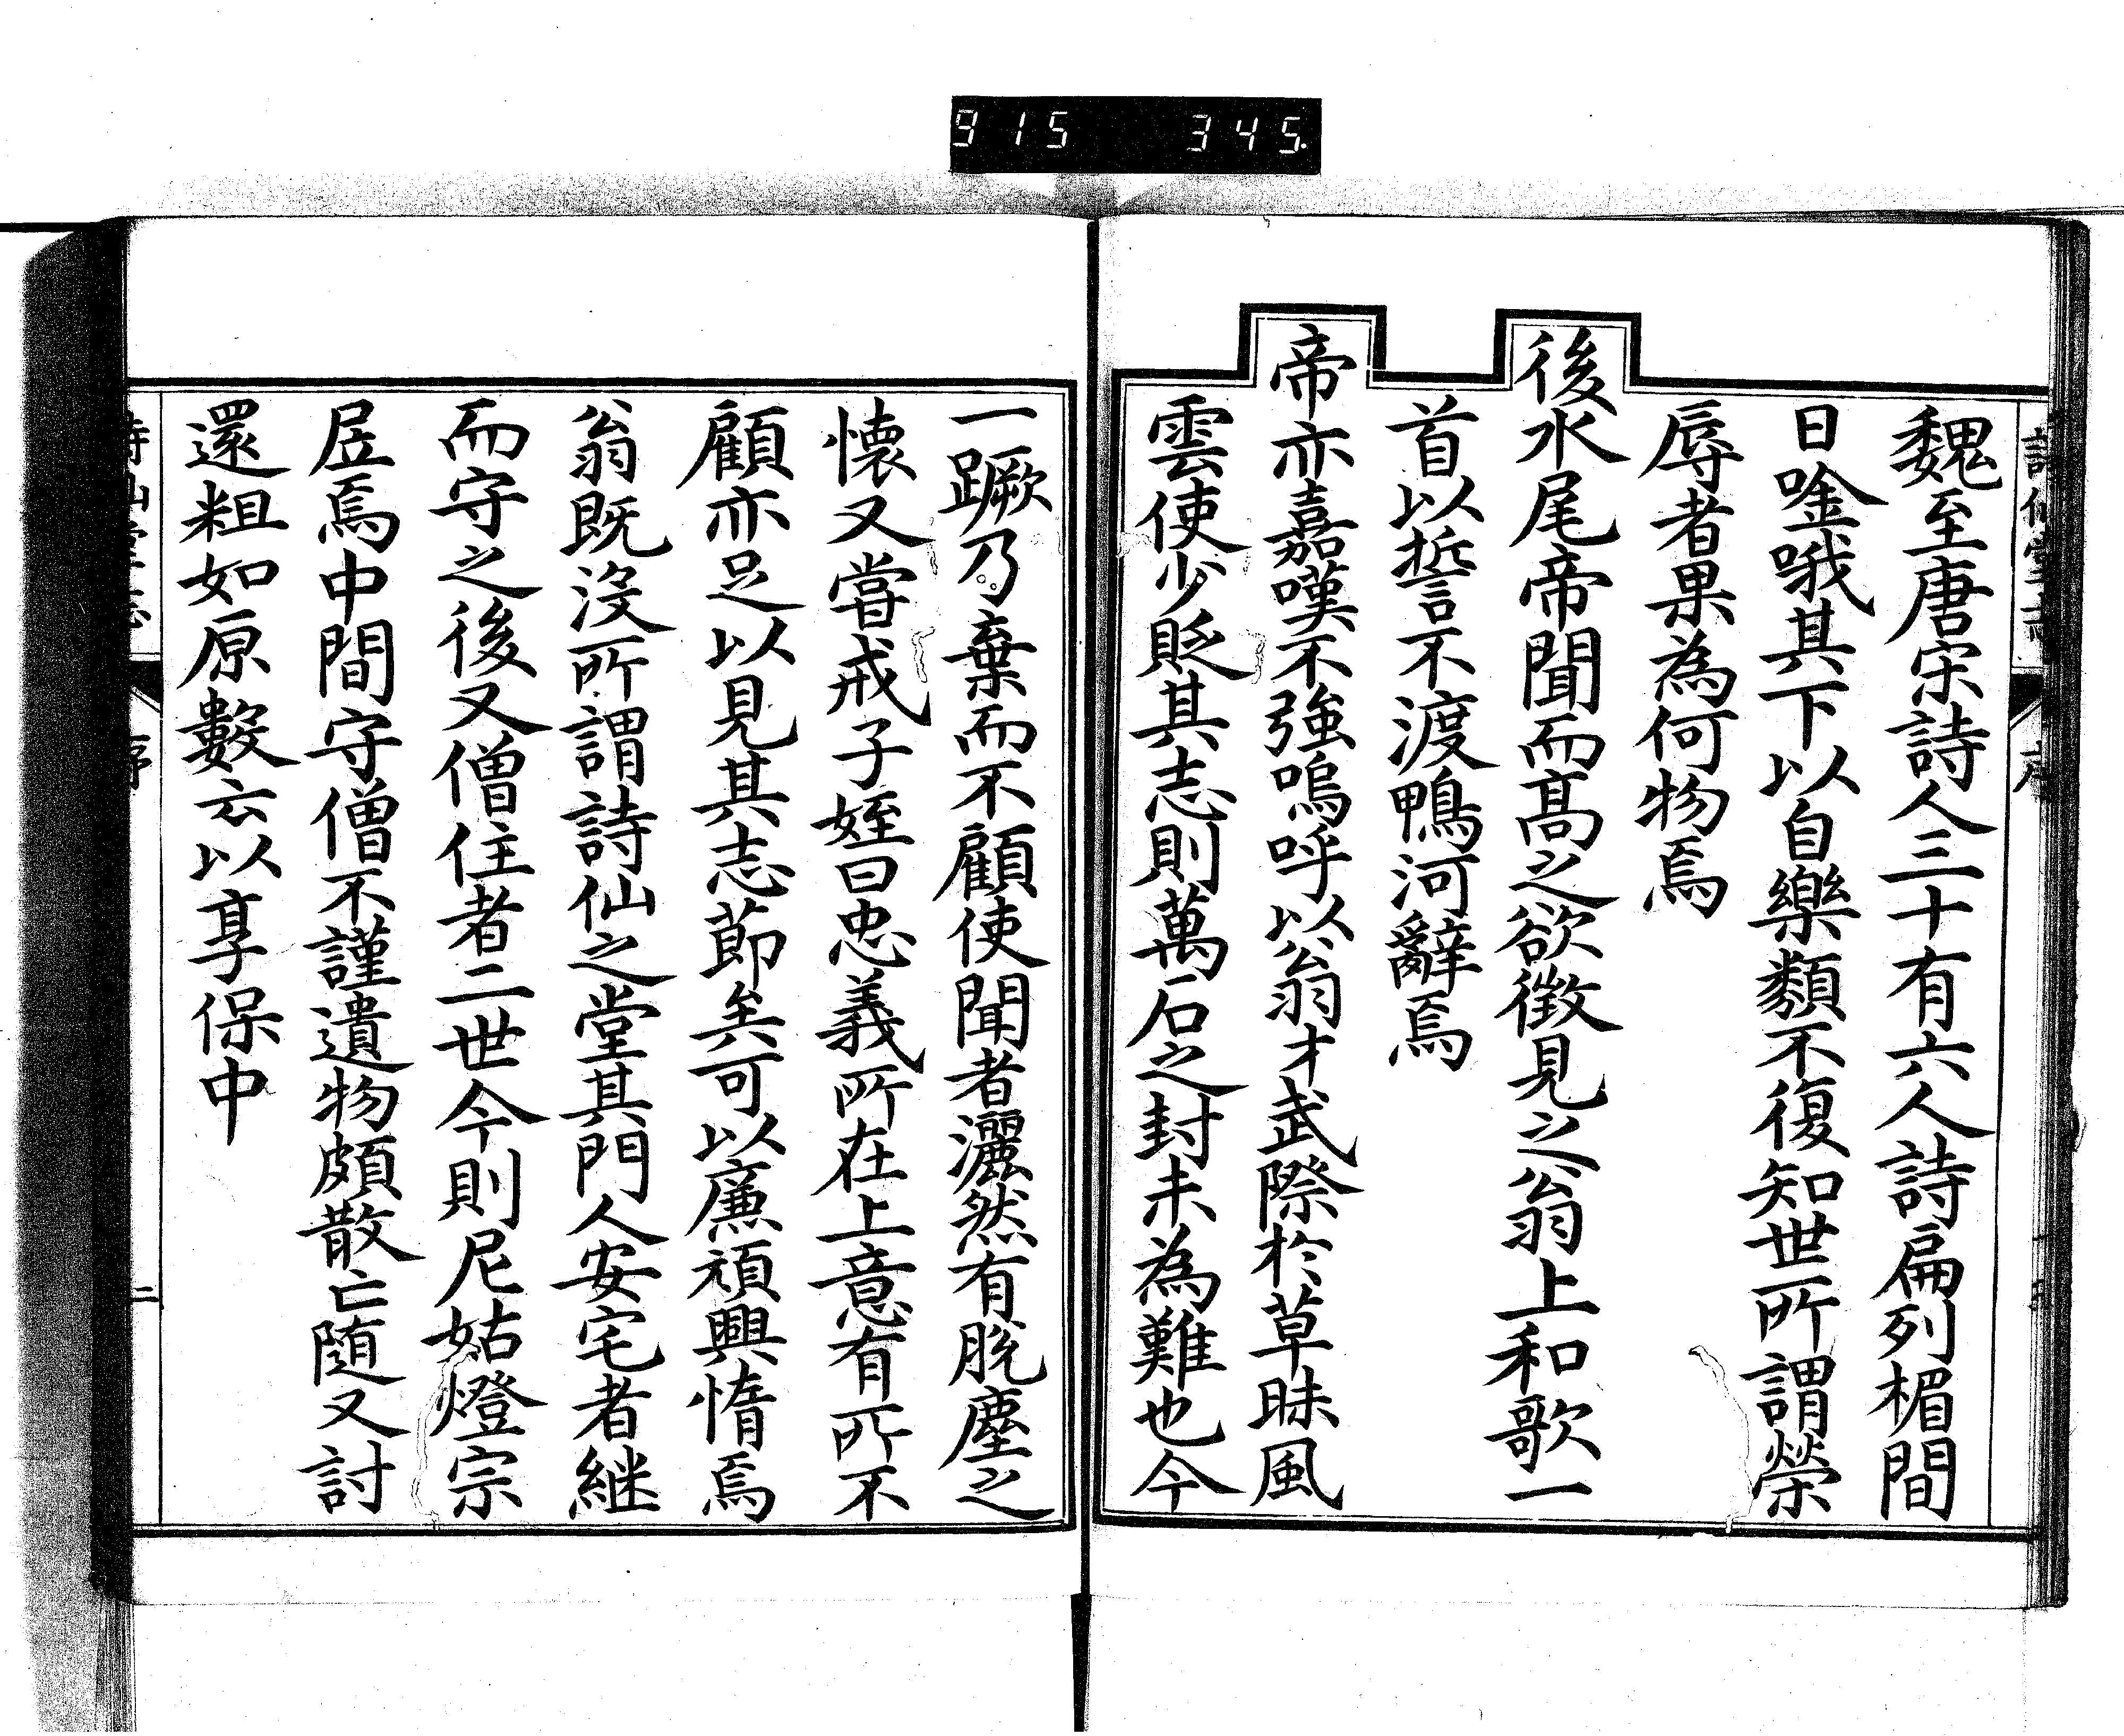 915 345
魏至唐宋詩人三十有六人詩扁列楣間
日唫哦其下以自樂類不復知世所謂榮
辱者果為何物焉
後水尾帝聞而髙之欲徴見之翁上和歌一
首以誓不渡鴨河辭焉
帝亦嘉嘆不強嗚呼以翁才武際於草昧風
雲使少貶其志則萬石之封未為難也今
一蹶乃棄而不顧使聞者灑然有脱塵之
懷又嘗戒子姪曰忠義所在上意有所不
顧亦足以見其志節矣可以廉頑興惰焉
翁既没所謂詩仙之堂其門人安宅者継
而守之後又僧住者二世今則尼姑燈宗
居焉中間守僧不謹遺物頗散亡随又討
還粗如原數云以享保中
詩仙堂志
序
二